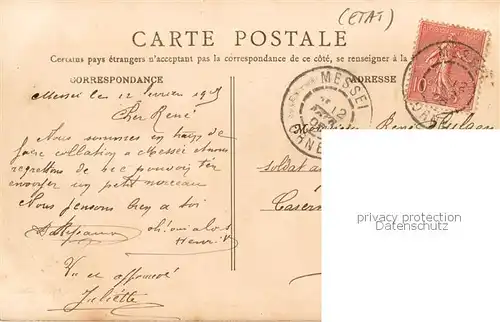 (ETAT)
CARTE POSTALE
Certains pays étrangers n'acceptant pas la correspondance de ce côté, se renseigner à la
CORRESPONDANCE
ADRESSE
MESSEI
12
ORNE
10
Messei le 12 février 1905
Cher René
Nous sommes en train de
faire collation à Messei nous
regrettons de ne pouvoir t'en
envoyer un petit morceau
Nous pensons bien a toi
oh! oui alors
Henri
Vu et affirmé
Juliette
Monsieur René
soldat au
Casern
privacy protection
Datenschutz